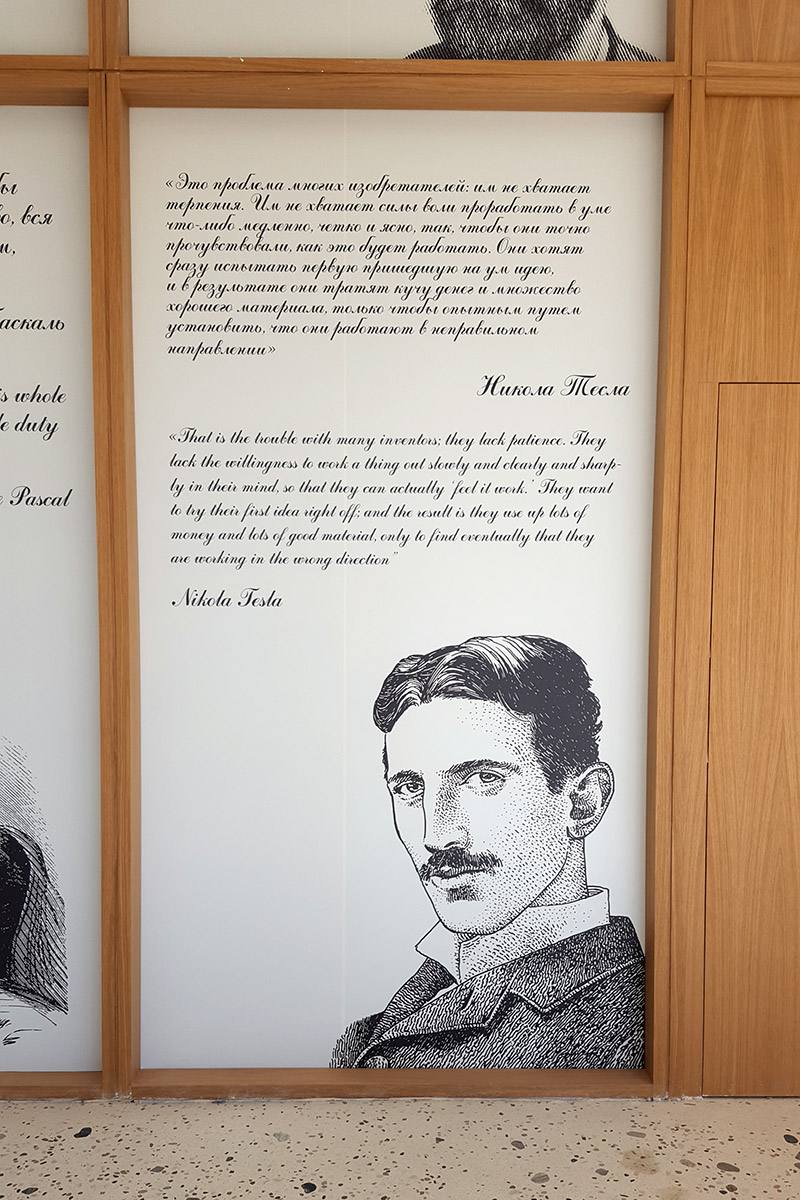 бы
во, вся
м,
Паскаль
is whole
le duty
Pascal
«Это проблема многих изобретателей: им не хватает
терпения. Им не хватает силы воли проработать в уме
что-либо медленно, четко и ясно, так, чтобы они точно
прочувствовали, как это будет работать. Они хотят
сразу испытать первую пришедшую на ум идею,
и в результате они тратят кучу денег и множество
хорошего материала, только чтобы опытным путем
установить, что они работают в неправильном
направлении»
Никола Тесла
«That is the trouble with many inventors; they lack patience. They
lack the willingness to work a thing out slowly and clearly and sharp-
ly in their mind, so that they can actually 'feel it work.' They want
to try their first idea right off; and the result is they use up lots of
money and lots of good material, only to find eventually that they
are working in the wrong direction"
Nikola Tesla